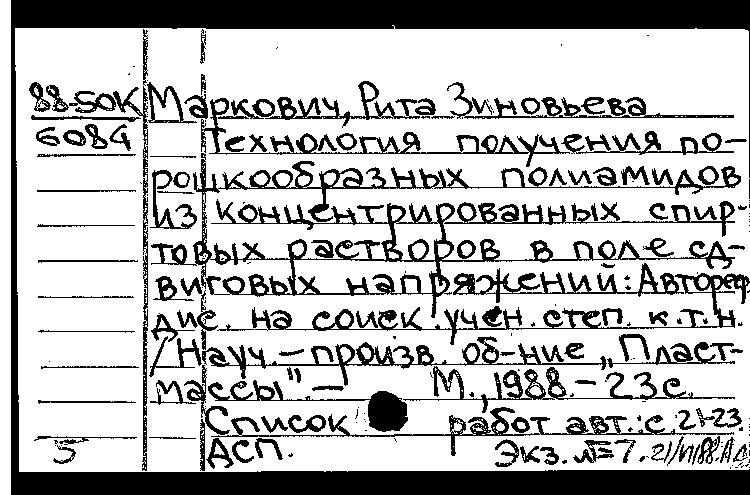 88-50К Маркович, Рита Зиновьева
6084 Технология получения по-
рошкообразных полиамидов
из концентрированных спир-
товых растворов в поле сд-
виговых напряжений: Автореф
дис. на соиск. учен. степ. к.т.н.
/Науч.-произв. об-ние „Пласт-
массы".- М., 1988.- 23с.
Список работ авт.: с. 21-23.
5 ДСП. Экз. №7.